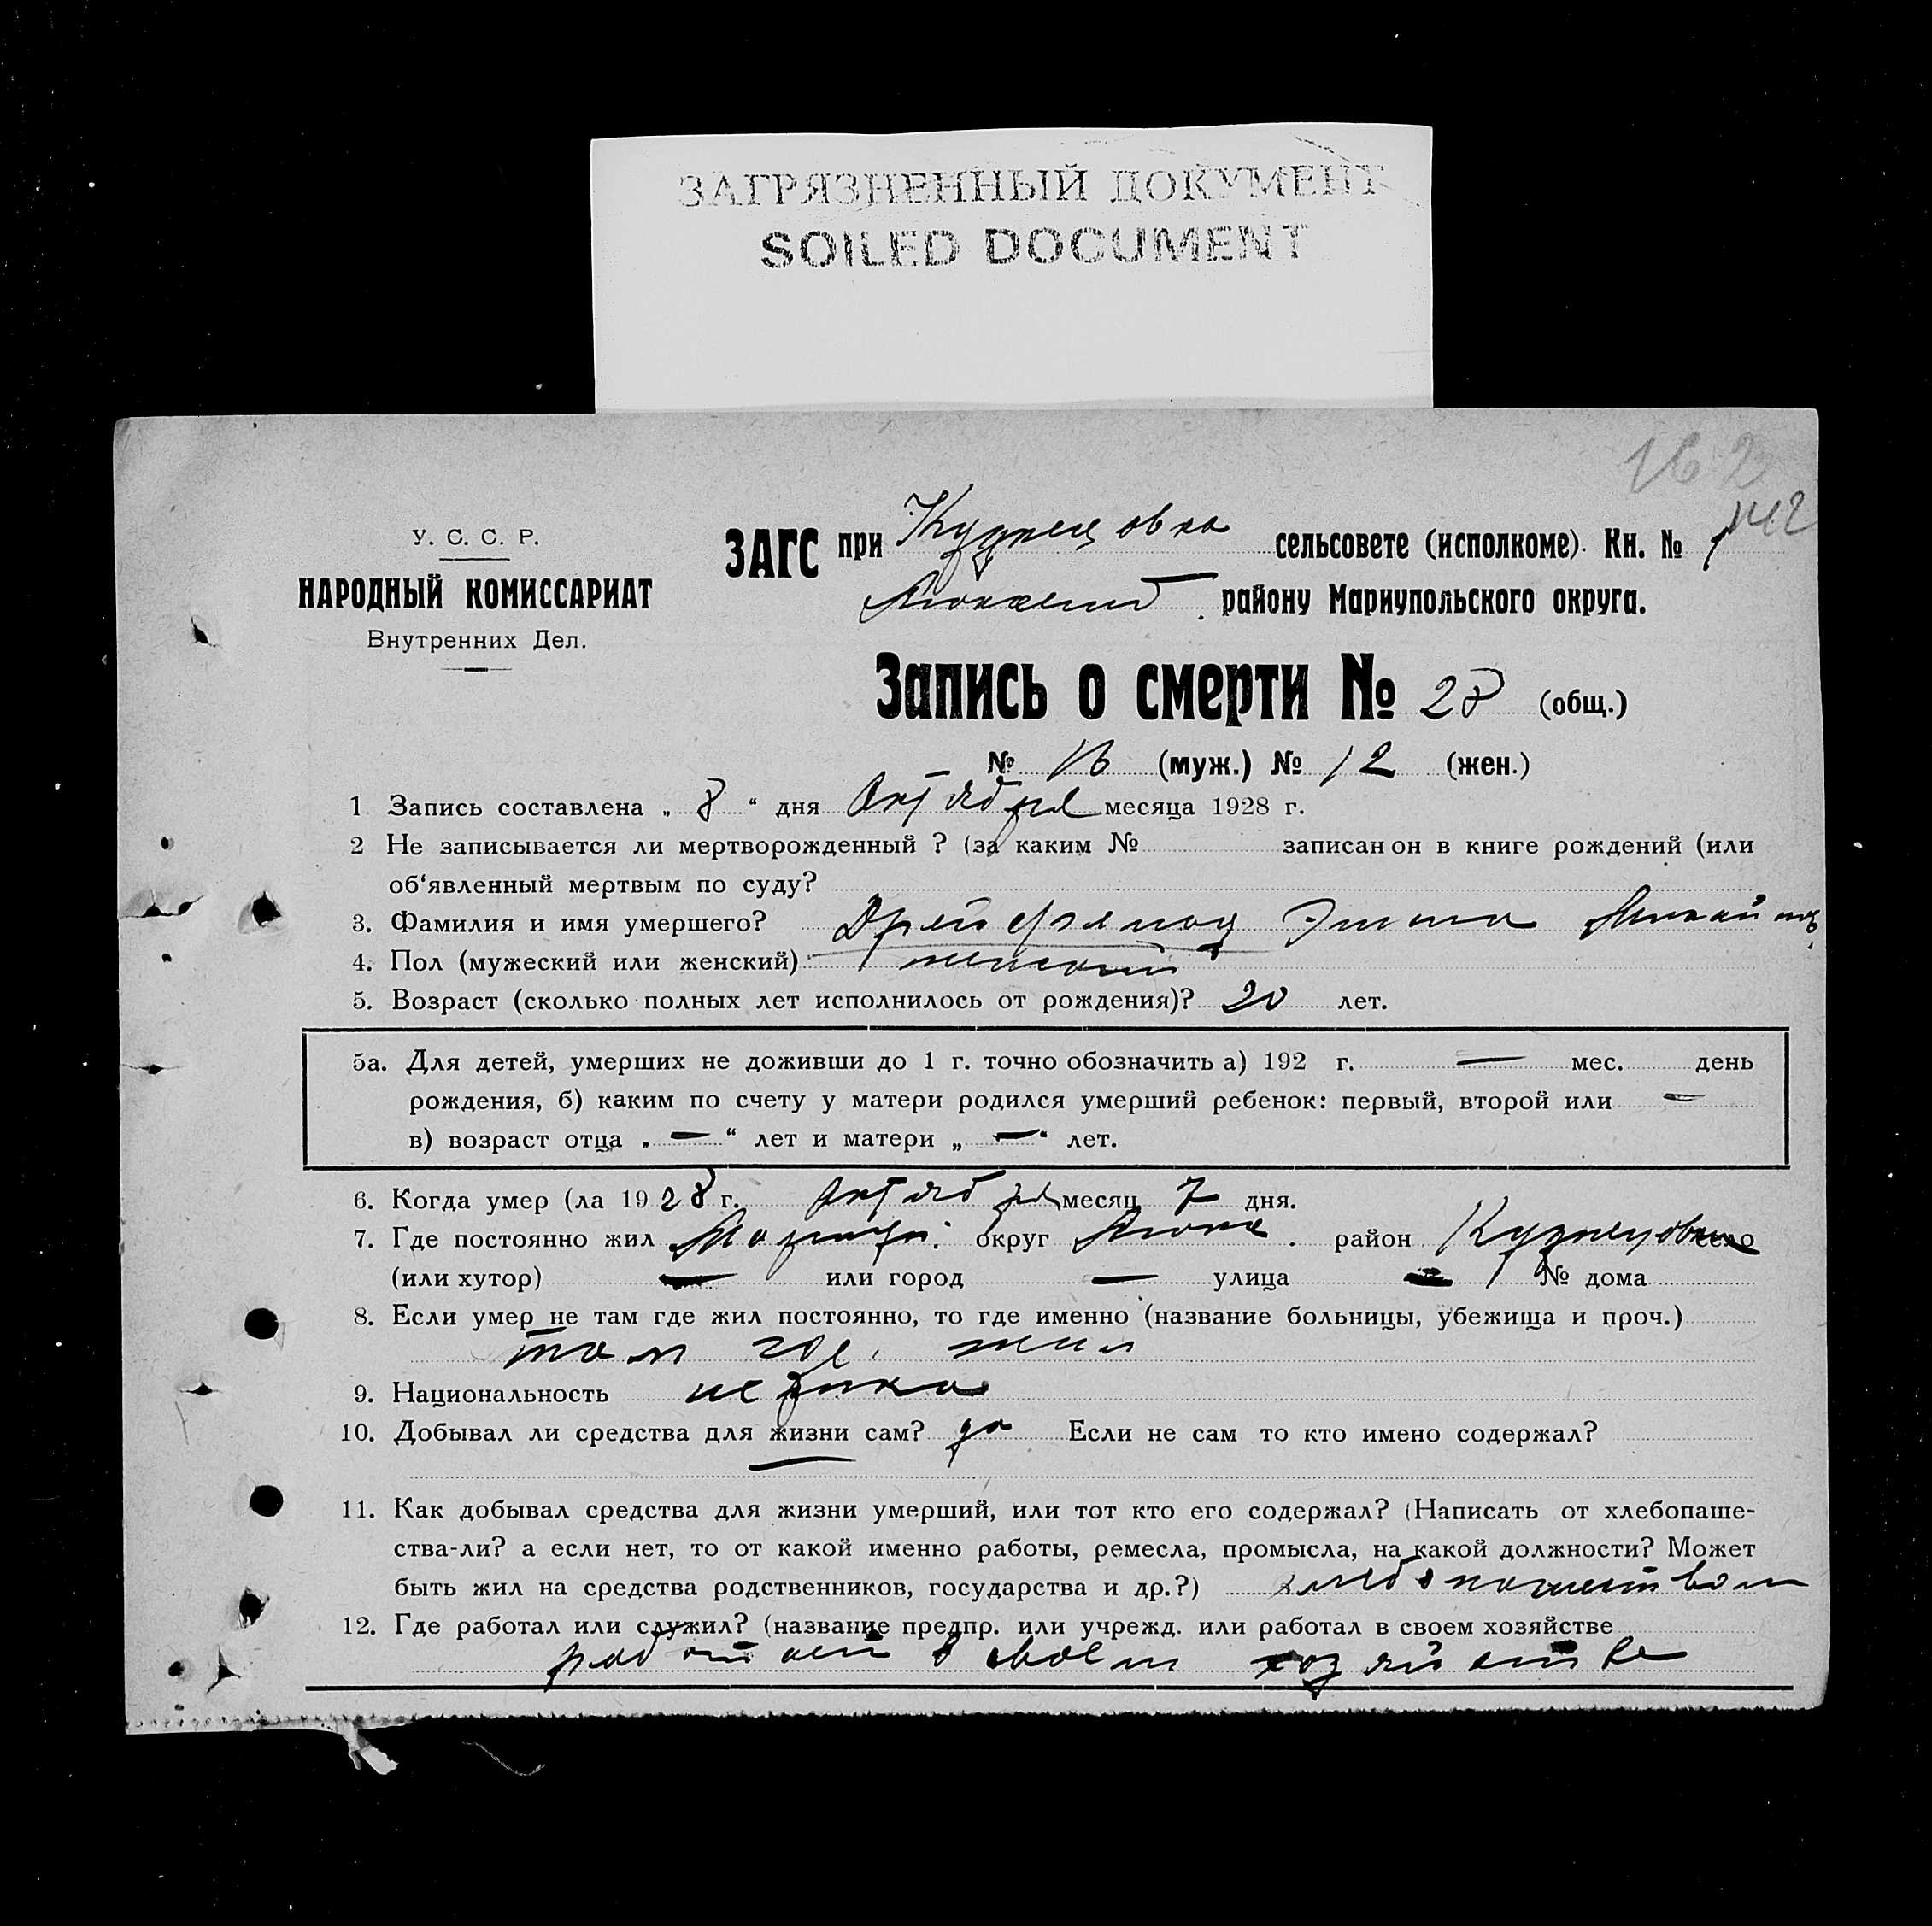 ЗАГРЯЗНЕННЫЙ ДОКУМЕНТ
SOILED DOCUMENT
162
142
У. С. С. Р.
НАРОДНЫЙ КОМИССАРИАТ
Внутренних Дел.
ЗАГС при Кузнецовка сельсовете (исполкоме). Кн. № 1
району Мариупольского округа.
Запись о смерти № 28 (общ.)
№ 16 (муж.) № 12 (жен.)
1 Запись составлена „ 8 “ дня Октября месяца 1928 г.
2 Не записывается ли мертворожденный ? (за каким № записан он в книге рождений (или
об‘явленный мертвым по суду?
3. Фамилия и имя умершего?
4. Пол (мужеский или женский) женский
5. Возраст (сколько полных лет исполнилось от рождения)? 20 лет.
5а. Для детей, умерших не доживши до 1 г. точно обозначить а) 192 г. — мес. день
рождения, б) каким по счету у матери родился умерший ребенок: первый, второй или —
в) возраст отца „ — “ лет и матери „ — “ лет.
6. Когда умер (ла 1928 г. Октября месяц 7 дня.
7. Где постоянно жил Мариуп. округ Люкс. район Кузнецовка село
(или хутор) — или город — улица — № дома
8. Если умер не там где жил постоянно, то где именно (название больницы, убежища и проч.)
там где жил
9. Национальность немка
10. Добывал ли средства для жизни сам? да Если не сам то кто имено содержал?
11. Как добывал средства для жизни умерший, или тот кто его содержал? (Написать от хлебопаше-
ства-ли? а если нет, то от какой именно работы, ремесла, промысла, на какой должности? Может
быть жил на средства родственников, государства и др.?) хлебопашеством
12. Где работал или служил? (название предпр. или учрежд. или работал в своем хозяйстве
работает в своем хозяйстве